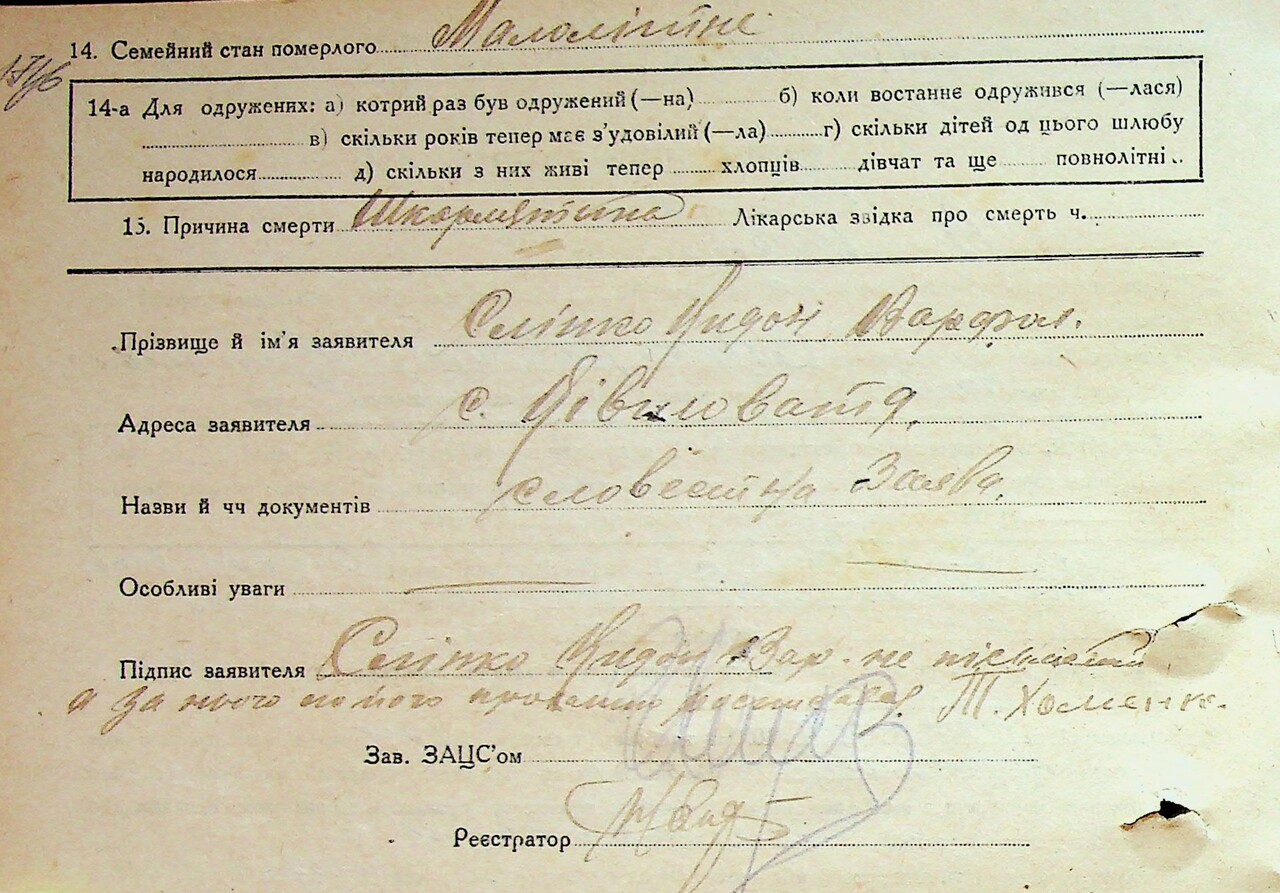 14. Семейний стан померлого Малолітне
14-а Для одружених: а) котрий раз був одружений (—на) б) коли востаннє одружився (—лася)
в) скільки років тепер має з’удовілий (—ла) г) скільки дітей од цього шлюбу
народилося д) скільки з них живі тепер хлопців дівчат та ще повнолітні
15. Причина смерти Шкарлятіна Лікарська звідка про смерть ч.
Прізвище й ім’я заявителя Сліпко Кидон Варфол.
Адреса заявителя с. Дівиловата
Назви й чч документів словестна Заява.
Особливі уваги
Підпис заявителя Сліпко Вар. не письмен
а за нього по його Т. Хоменк.
Зав. ЗАЦС’ом
Реєстратор